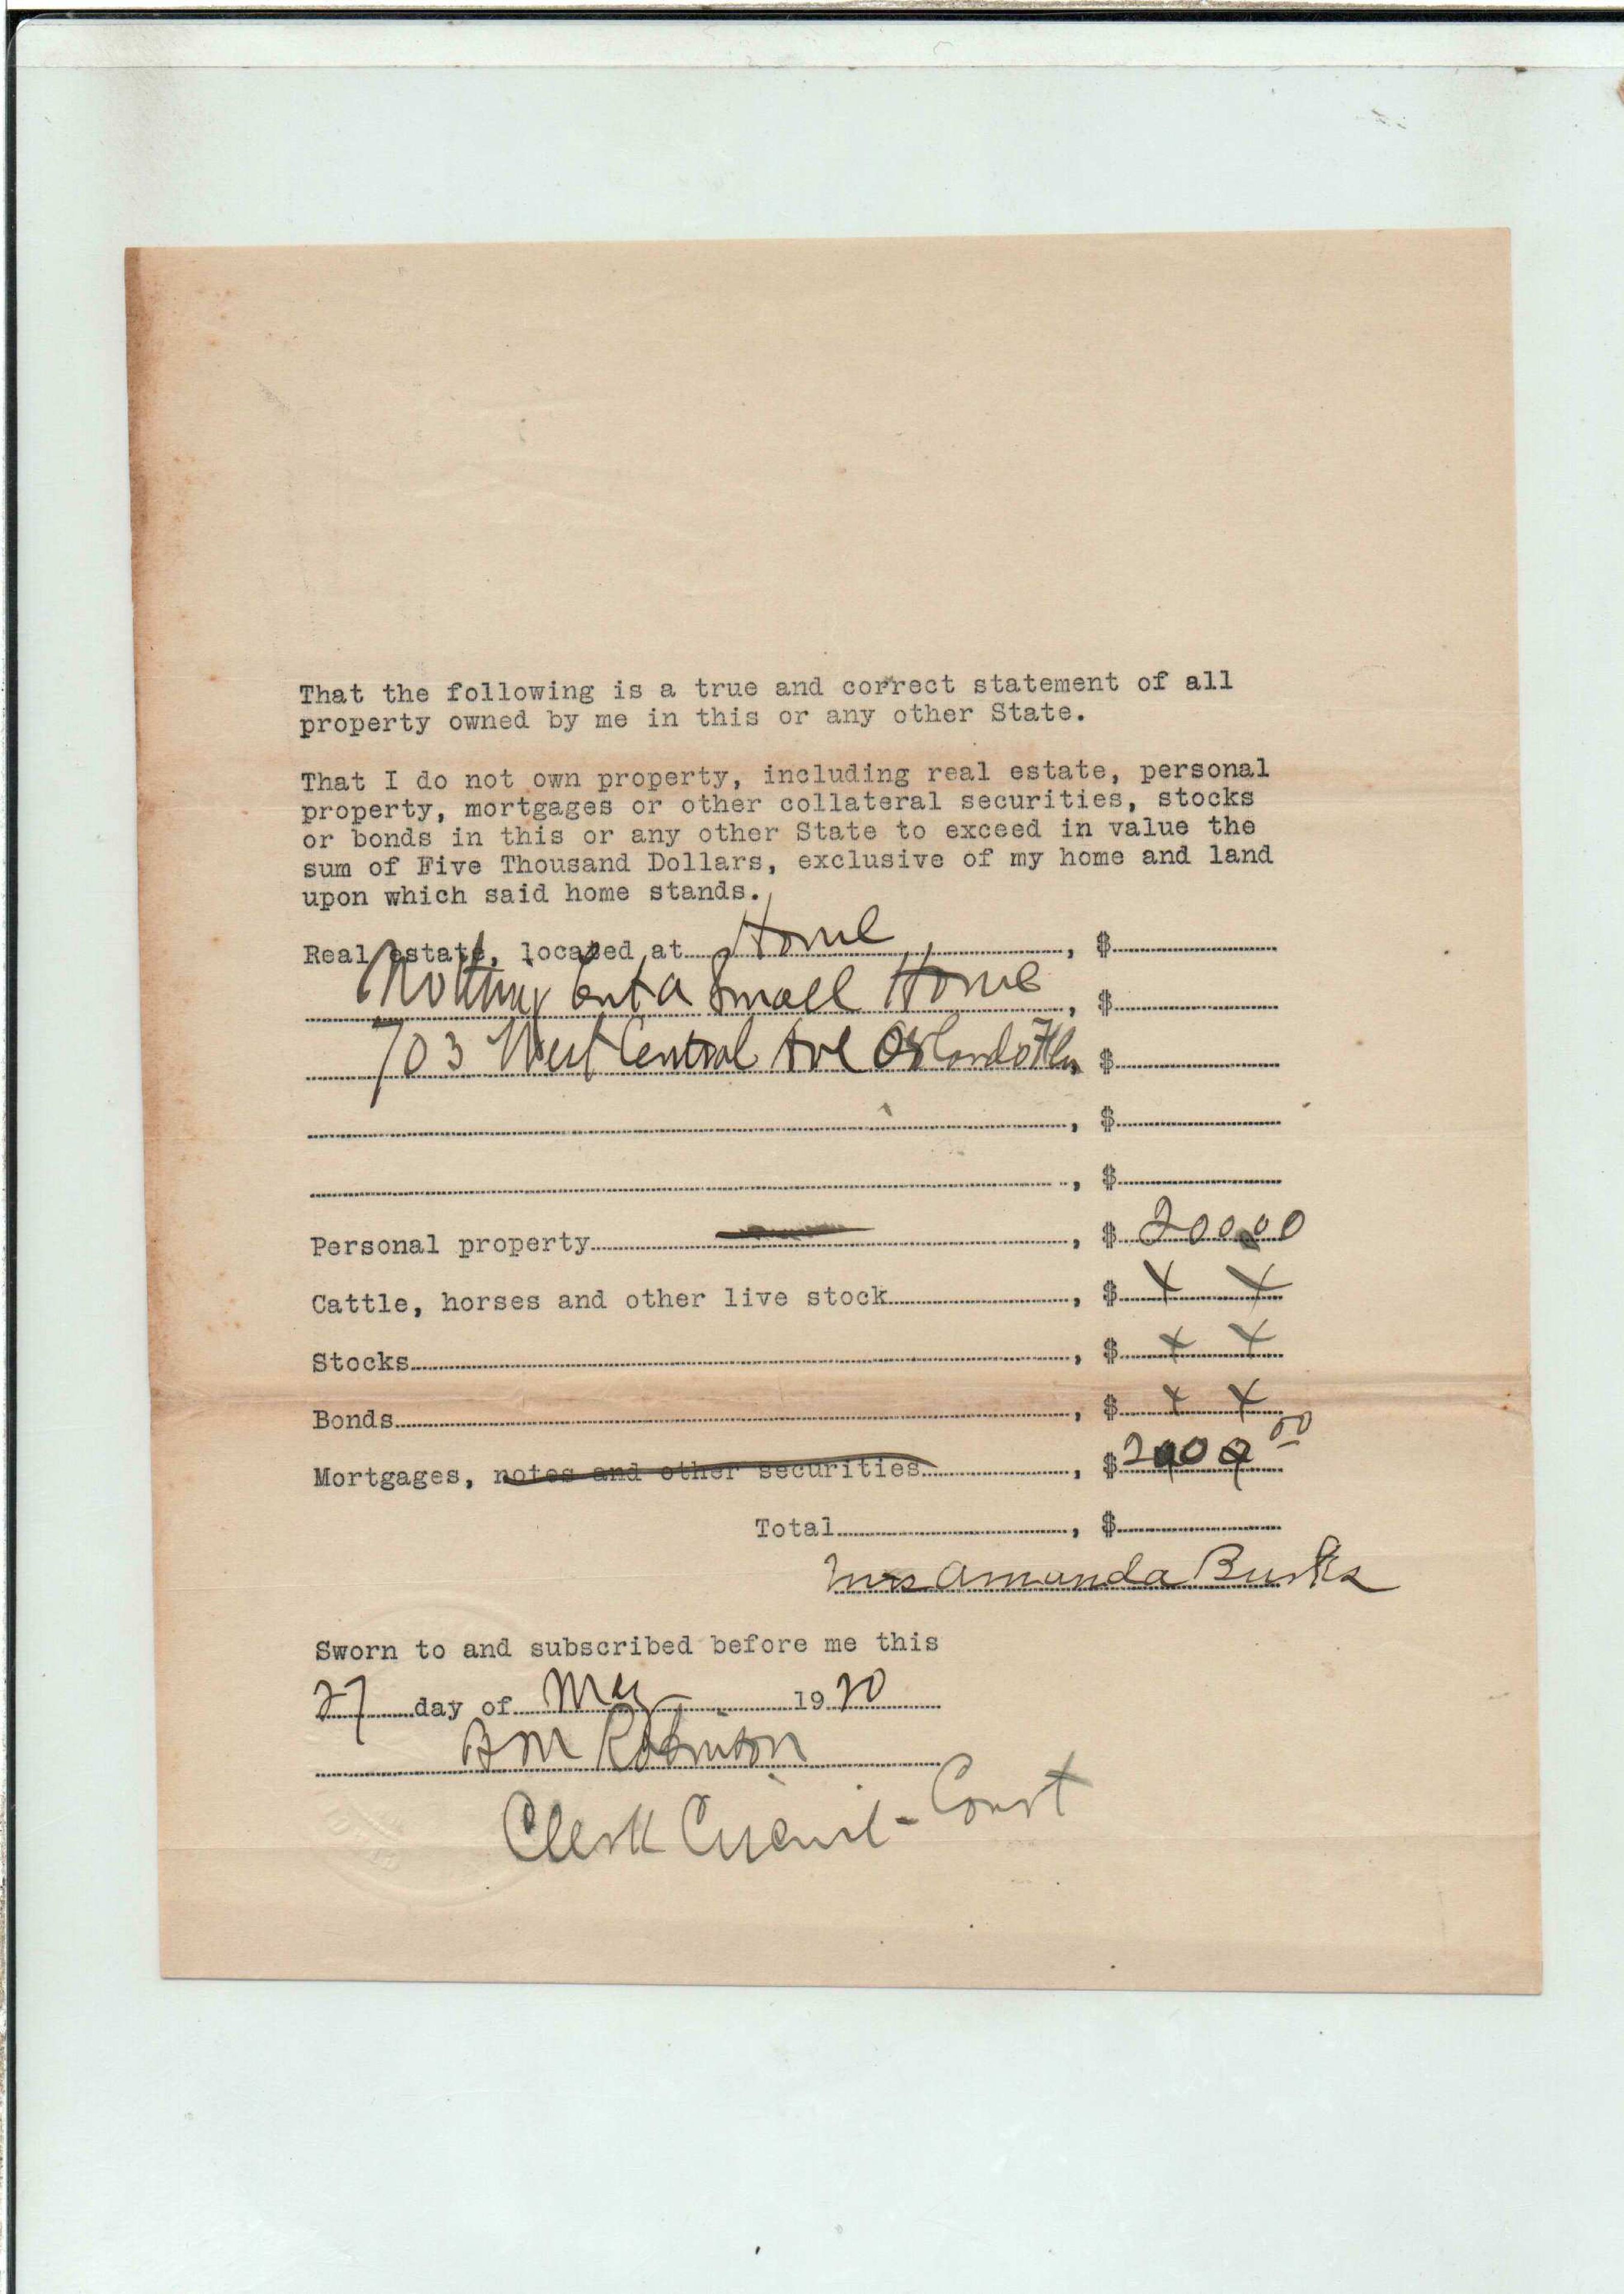 That the following is a true and correct statement of all
property owned by me in this or any other State.
That I do not own property, including real estate, personal
property, mortgages or other collateral securities, stocks
or bonds in this or any other State to exceed in value the
sum of Five Thousand Dollars, exclusive of my home and land
upon which said home stands.
Real estate, located at Home, $
Nothing but a Small Home, $
703 West Central Ave Orlando Fla, $
, $
, $
Personal property, $ 200.00
Cattle, horses and other live stock, $ x x
Stocks, $ x x
Bonds, $ x x
Mortgages, notes and other securities, $
Total, $
Mrs Amanda Burks
Sworn to and subscribed before me this
27 day of May 1920
B M Robinson
Clerk Circuit Court